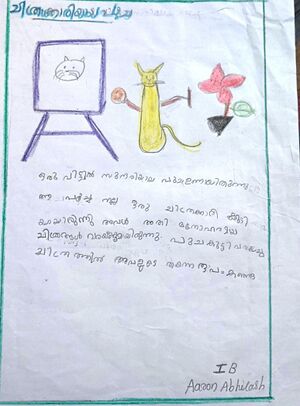 ചിത്രക്കാരിയായ പൂച്ച
ഒരു വീട്ടിൽ സുന്ദരിയായ പൂച്ചഉണ്ടായിരുന്നു.
ആ പൂച്ച നല്ല ഒരു ചിത്രക്കാരി കൂടി
യായിരുന്നു അവൾ അതി മനോഹരമായ
ചിത്രങ്ങൾ വരയ്ക്കുമായിരുന്നു. പൂച്ചകുട്ടി വരച്ച
ചിത്രത്തിൽ അവളുടെ തന്നെ രൂപം കണ്ടു
I B
Aaron Abhilash